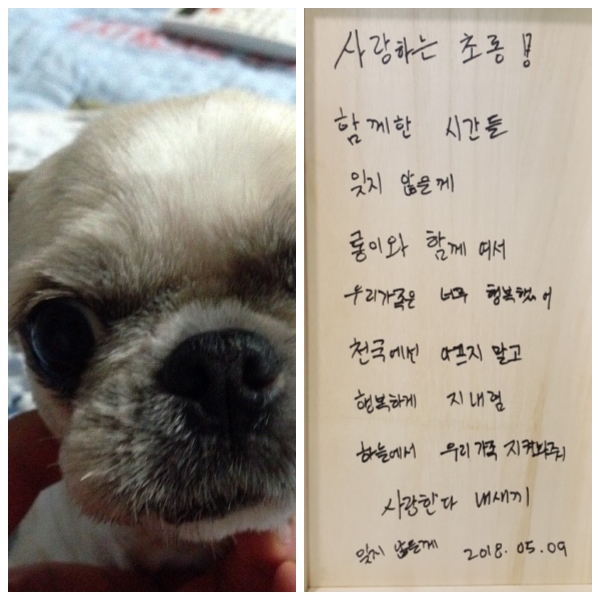 사랑하는 초롱!
함께한 시간들
잊지 않을께
롱이와 함께 여서
우리가족은 너무 행복했어
천국에선 아프지 말고
행복하게 지내렴
하늘에서 우리 가족 지켜봐줘
사랑한다 내새끼
잊지 않을께 2018.05.09